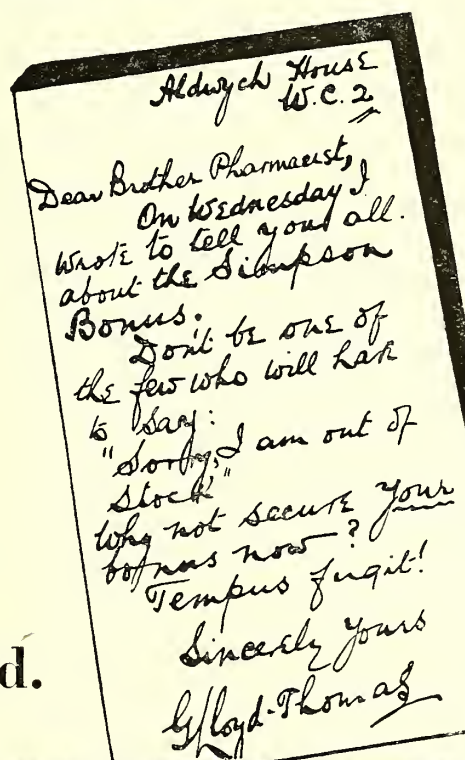 Aldwych House
W.C.2
Dear Brother Pharmacist,
On Wednesday I
wrote to tell you all
about the Simpson
Bonus.
Don't be one of
the few who will have
to say:
"Sorry, I am out of
stock"
Why not secure your
bonus now?
Tempus fugit!
Sincerely yours
G Lloyd-Thomas
d.